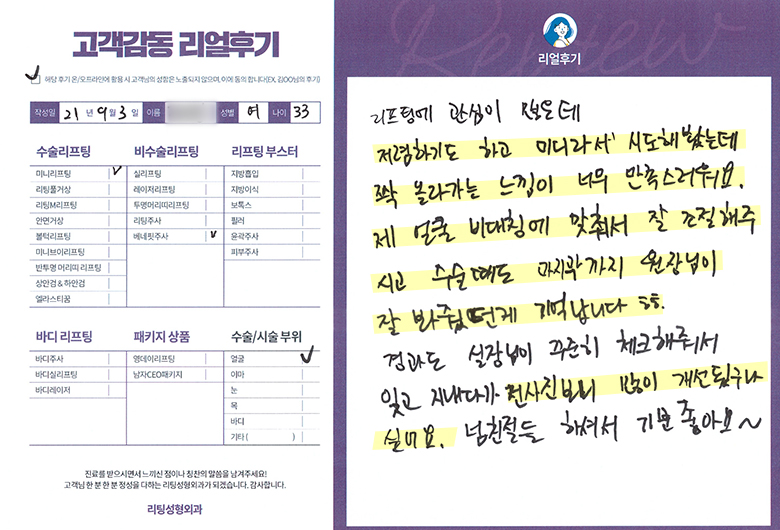 고객감동 리얼후기
해당 후기 온/오프라인에 활용 시 고객님의 성함은 노출되지 않으며, 이에 동의 합니다(EX, 김OO님의 후기)
작성일 21 년 9 월 3 일 이름 성별 여 나이 33
수술리프팅 비수술리프팅 리프팅 부스터
미니리프팅 실리프팅 지방흡입
리팅풀거상 레이저리프팅 지방이식
리팅M리프팅 투명머리띠리프팅 보톡스
안면거상 리팅주사 필러
볼턱리프팅 베네핏주사 윤곽주사
미니브이리프팅 피부주사
반투명 머리띠 리프팅
상안검 & 하안검
엘라스티꿈
바디 리프팅 패키지 상품 수술/시술 부위
바디주사 영데이리프팅 얼굴
바디실리프팅 남자CEO패키지 이마
바디레이저 눈
목
바디
기타 ( )
진료를 받으시면서 느끼신 점이나 칭찬의 말씀을 남겨주세요!
고객님 한 분 한 분 정성을 다하는 리팅성형외과가 되겠습니다. 감사합니다.
리팅성형외과
Review
리얼후기
리프팅에 관심이 많은데
저렴하기도 하고 미니라서 시도해봤는데
쫙 올라가는 느낌이 너무 만족스러워요.
제 얼굴 비대칭에 맞춰서 잘 조절해주
시고 수술때도 마지막까지 원장님이
잘 봐주셨던게 기억납니다 ㅎㅎ.
경과도 실장님이 꾸준히 체크해주셔서
잊고 지내다가 전사진보니 많이 개선됬구나
싶어요. 넘친절들 하셔서 기분 좋아요~